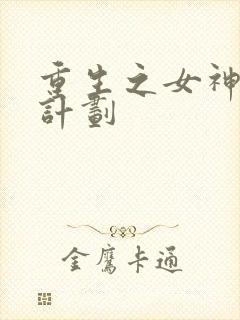 重生之女神
計劃
金鷹卡通